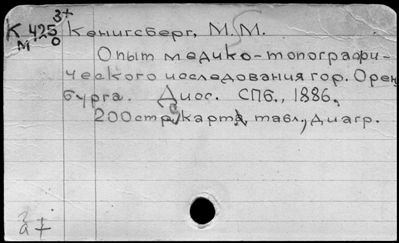 3+
К 425 Кенигсберг, М.М.
М 0
Опыт медико-топографи-
ческого исследования гор. Орен
бурга. Дисс. СПб., 1886,
200стр., карта, табл., диагр.